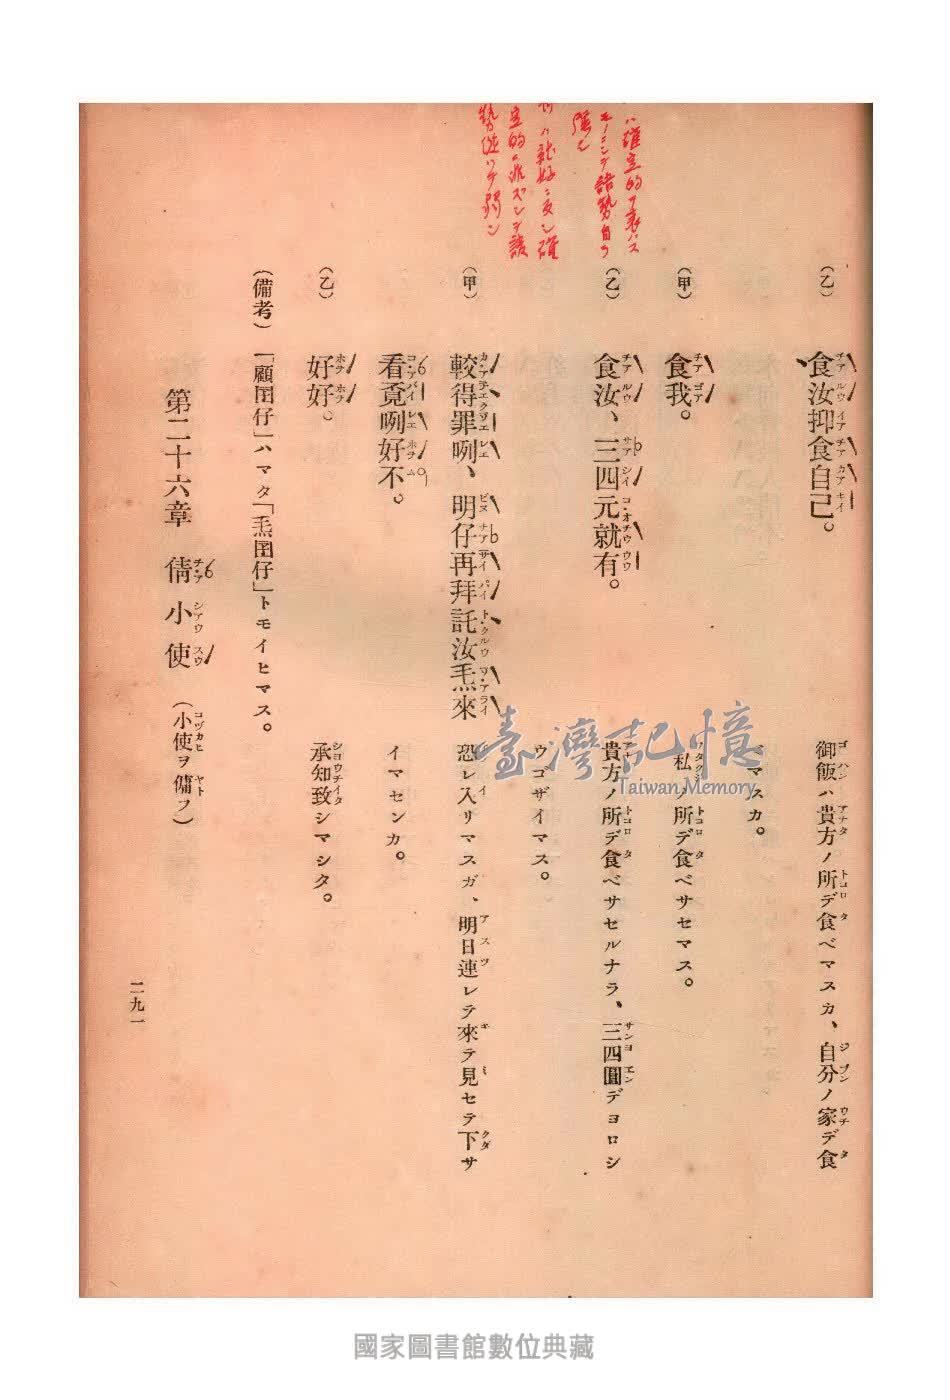 (乙)
食汝抑食自己。
御飯ハ貴方ノ所デ食ベマスカ、自分ノ家デ食
ベマスカ。
(甲)
食我。
私ノ所デ食ベサセマス。
(乙)
食汝、三四元就有。
貴方ノ所デ食ベサセルナラ、三四圓デヨロシ
ウゴザイマス。
(甲)
較得罪咧、明仔再拜託汝𤆬來
看覓咧好不。
恐レ入リマスガ、明日連レテ來テ見セテ下サ
イマセンカ。
(乙)
好好。
承知致シマシタ。
(備考)「顧囝仔」ハマタ「𤆬囝仔」トモイヒマス。
第二十六章 倩小使 (小使ヲ傭フ)
二九一
臺灣記憶
Taiwan Memory
國家圖書館數位典藏